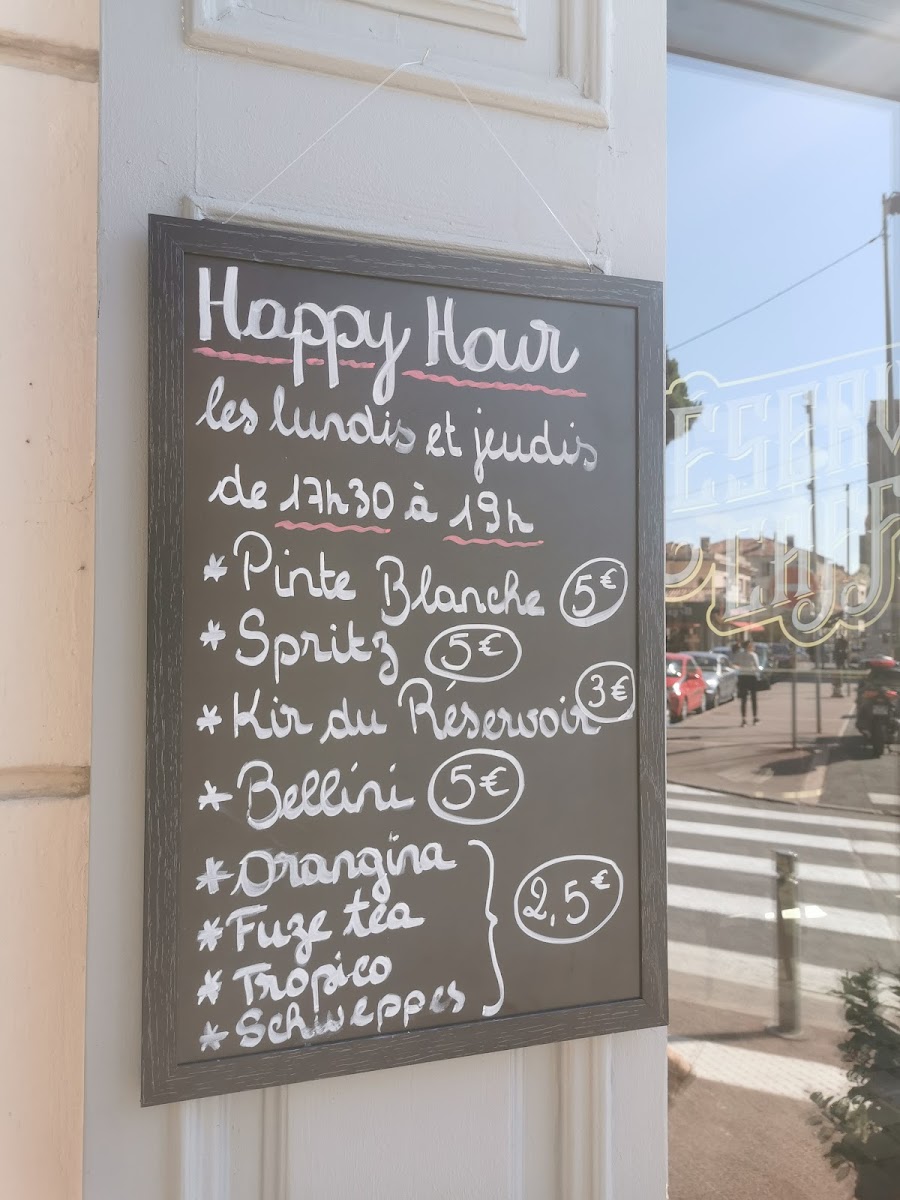 Happy Hour
les lundis et jeudis
de 17h30 à 19h
* Pinte Blanche 5€
* Spritz 5€
* Kir du Réservoir 3€
* Bellini 5€
* Orangina
* Fuze tea
* Tropico
* Schweppes
2,5€